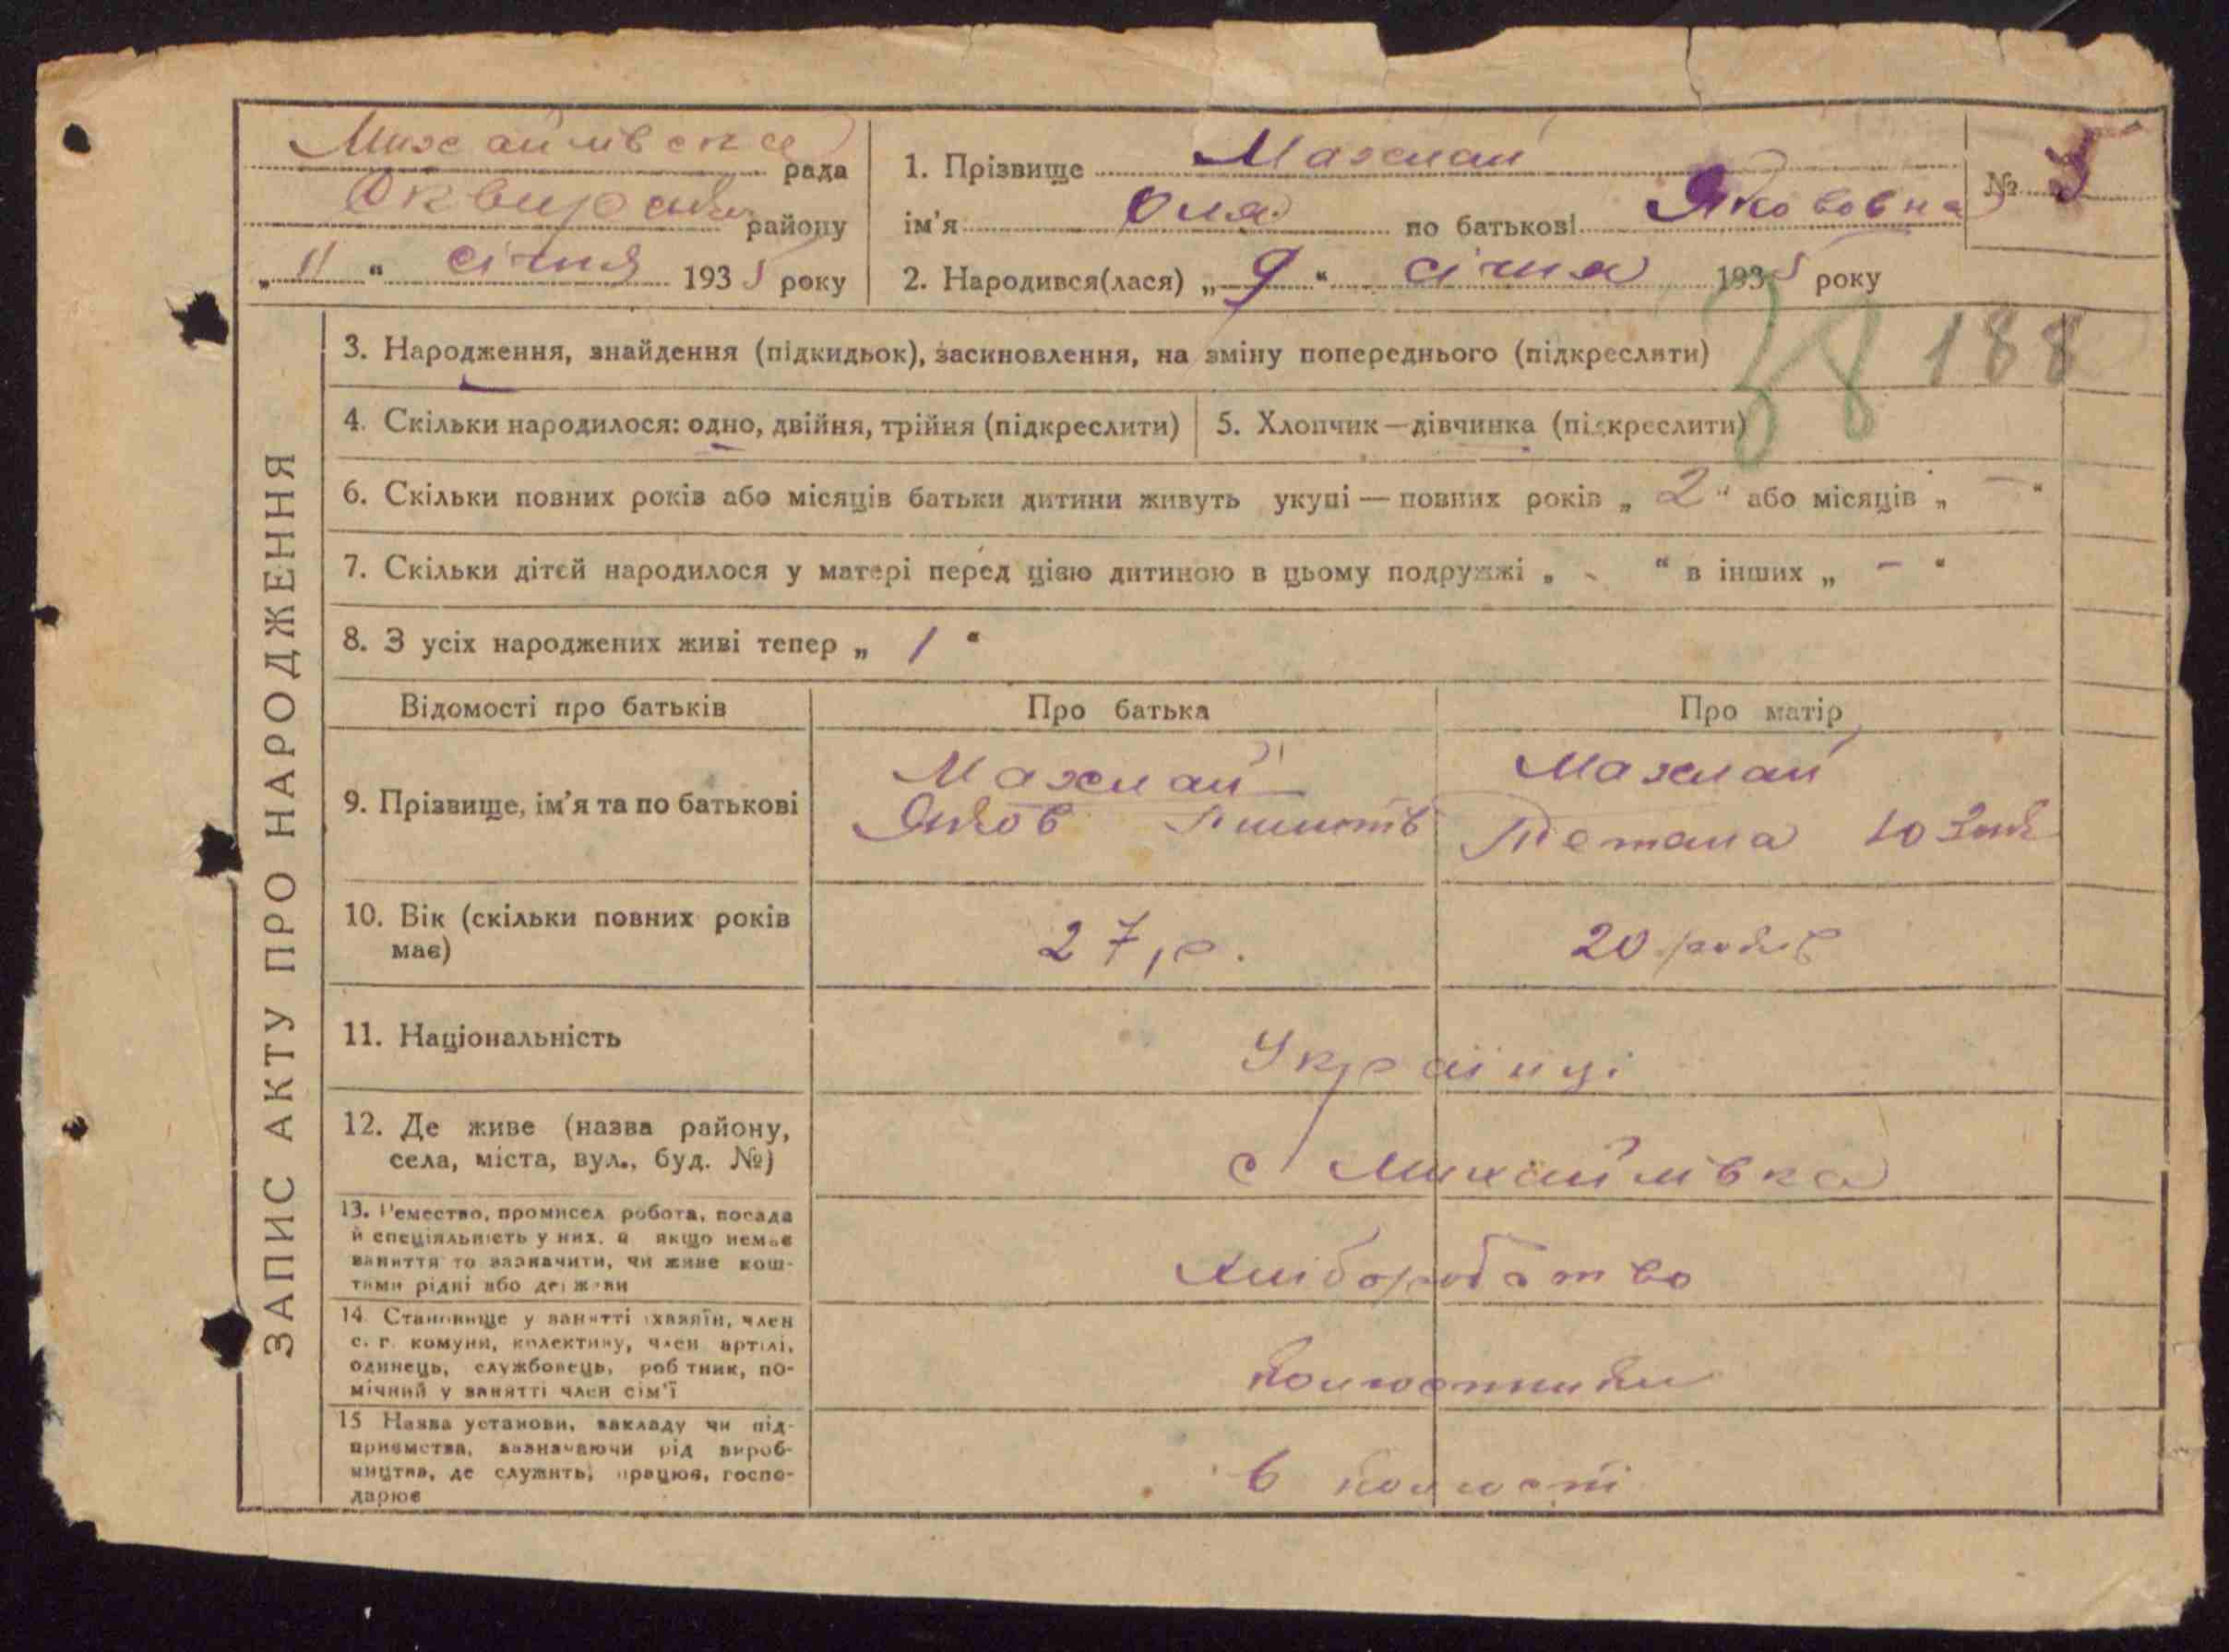 Михайлівска рада
Сквирськ району
„ 11 “ січня 1935 року
1. Прізвище Махлай
ім'я Оля по батькові Якововна
№ 5
2. Народився(лася) „ 9 “ січня 1935 року
38 188
ЗАПИС АКТУ ПРО НАРОДЖЕННЯ
3. Народження, знайдення (підкидьок), засиновлення, на зміну попереднього (підкреслити)
4. Скільки народилося: одно, двійня, трійня (підкреслити)
5. Хлопчик—дівчинка (підкреслити)
6. Скільки повних років або місяців батьки дитини живуть укупі — повних років „ 2 “ або місяців „ — “
7. Скільки дітей народилося у матері перед цією дитиною в цьому подружжі „ - “ в інших „ — “
8. З усіх народжених живі тепер „ 1 “
Відомості про батьків
Про батька
Про матір
9. Прізвище, ім'я та по батькові
Махлай
Яков
Махлай
Тетяна
10. Вік (скільки повних років
має)
27 р.
20 років
11. Національність
Українці
12. Де живе (назва району,
села, міста, вул., буд. №)
с Михайлівка
13. Ремество, промисел робота, посада
й спеціяльність у них, а якщо немає
заняття то зазначити, чи живе кош-
тами рідні або держави
хліборобство
14. Становище у занятті хазяїн, член
с. г. комуни, колективу, член артілі,
одинець, службовець, робітник, по-
мічний у занятті член сім'ї
колгоспники
15 Назва установи, закладу чи під-
приємства, зазначаючи рід вироб-
ництва, де служить, працює, госпо-
дарює
в колгоспі